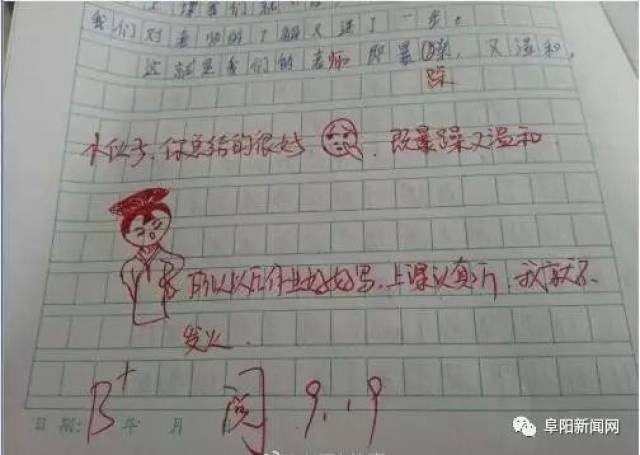 我们对老师的了解又进了一步。
这就是我们的老师 即暴噪,又温和。
躁
小伙子,你总结的很好,既暴躁又温和
所以以后作业好好写,上课认真听,我就不
发火.
B+ 阅 9.19
日期: 年 月
阜阳新闻网